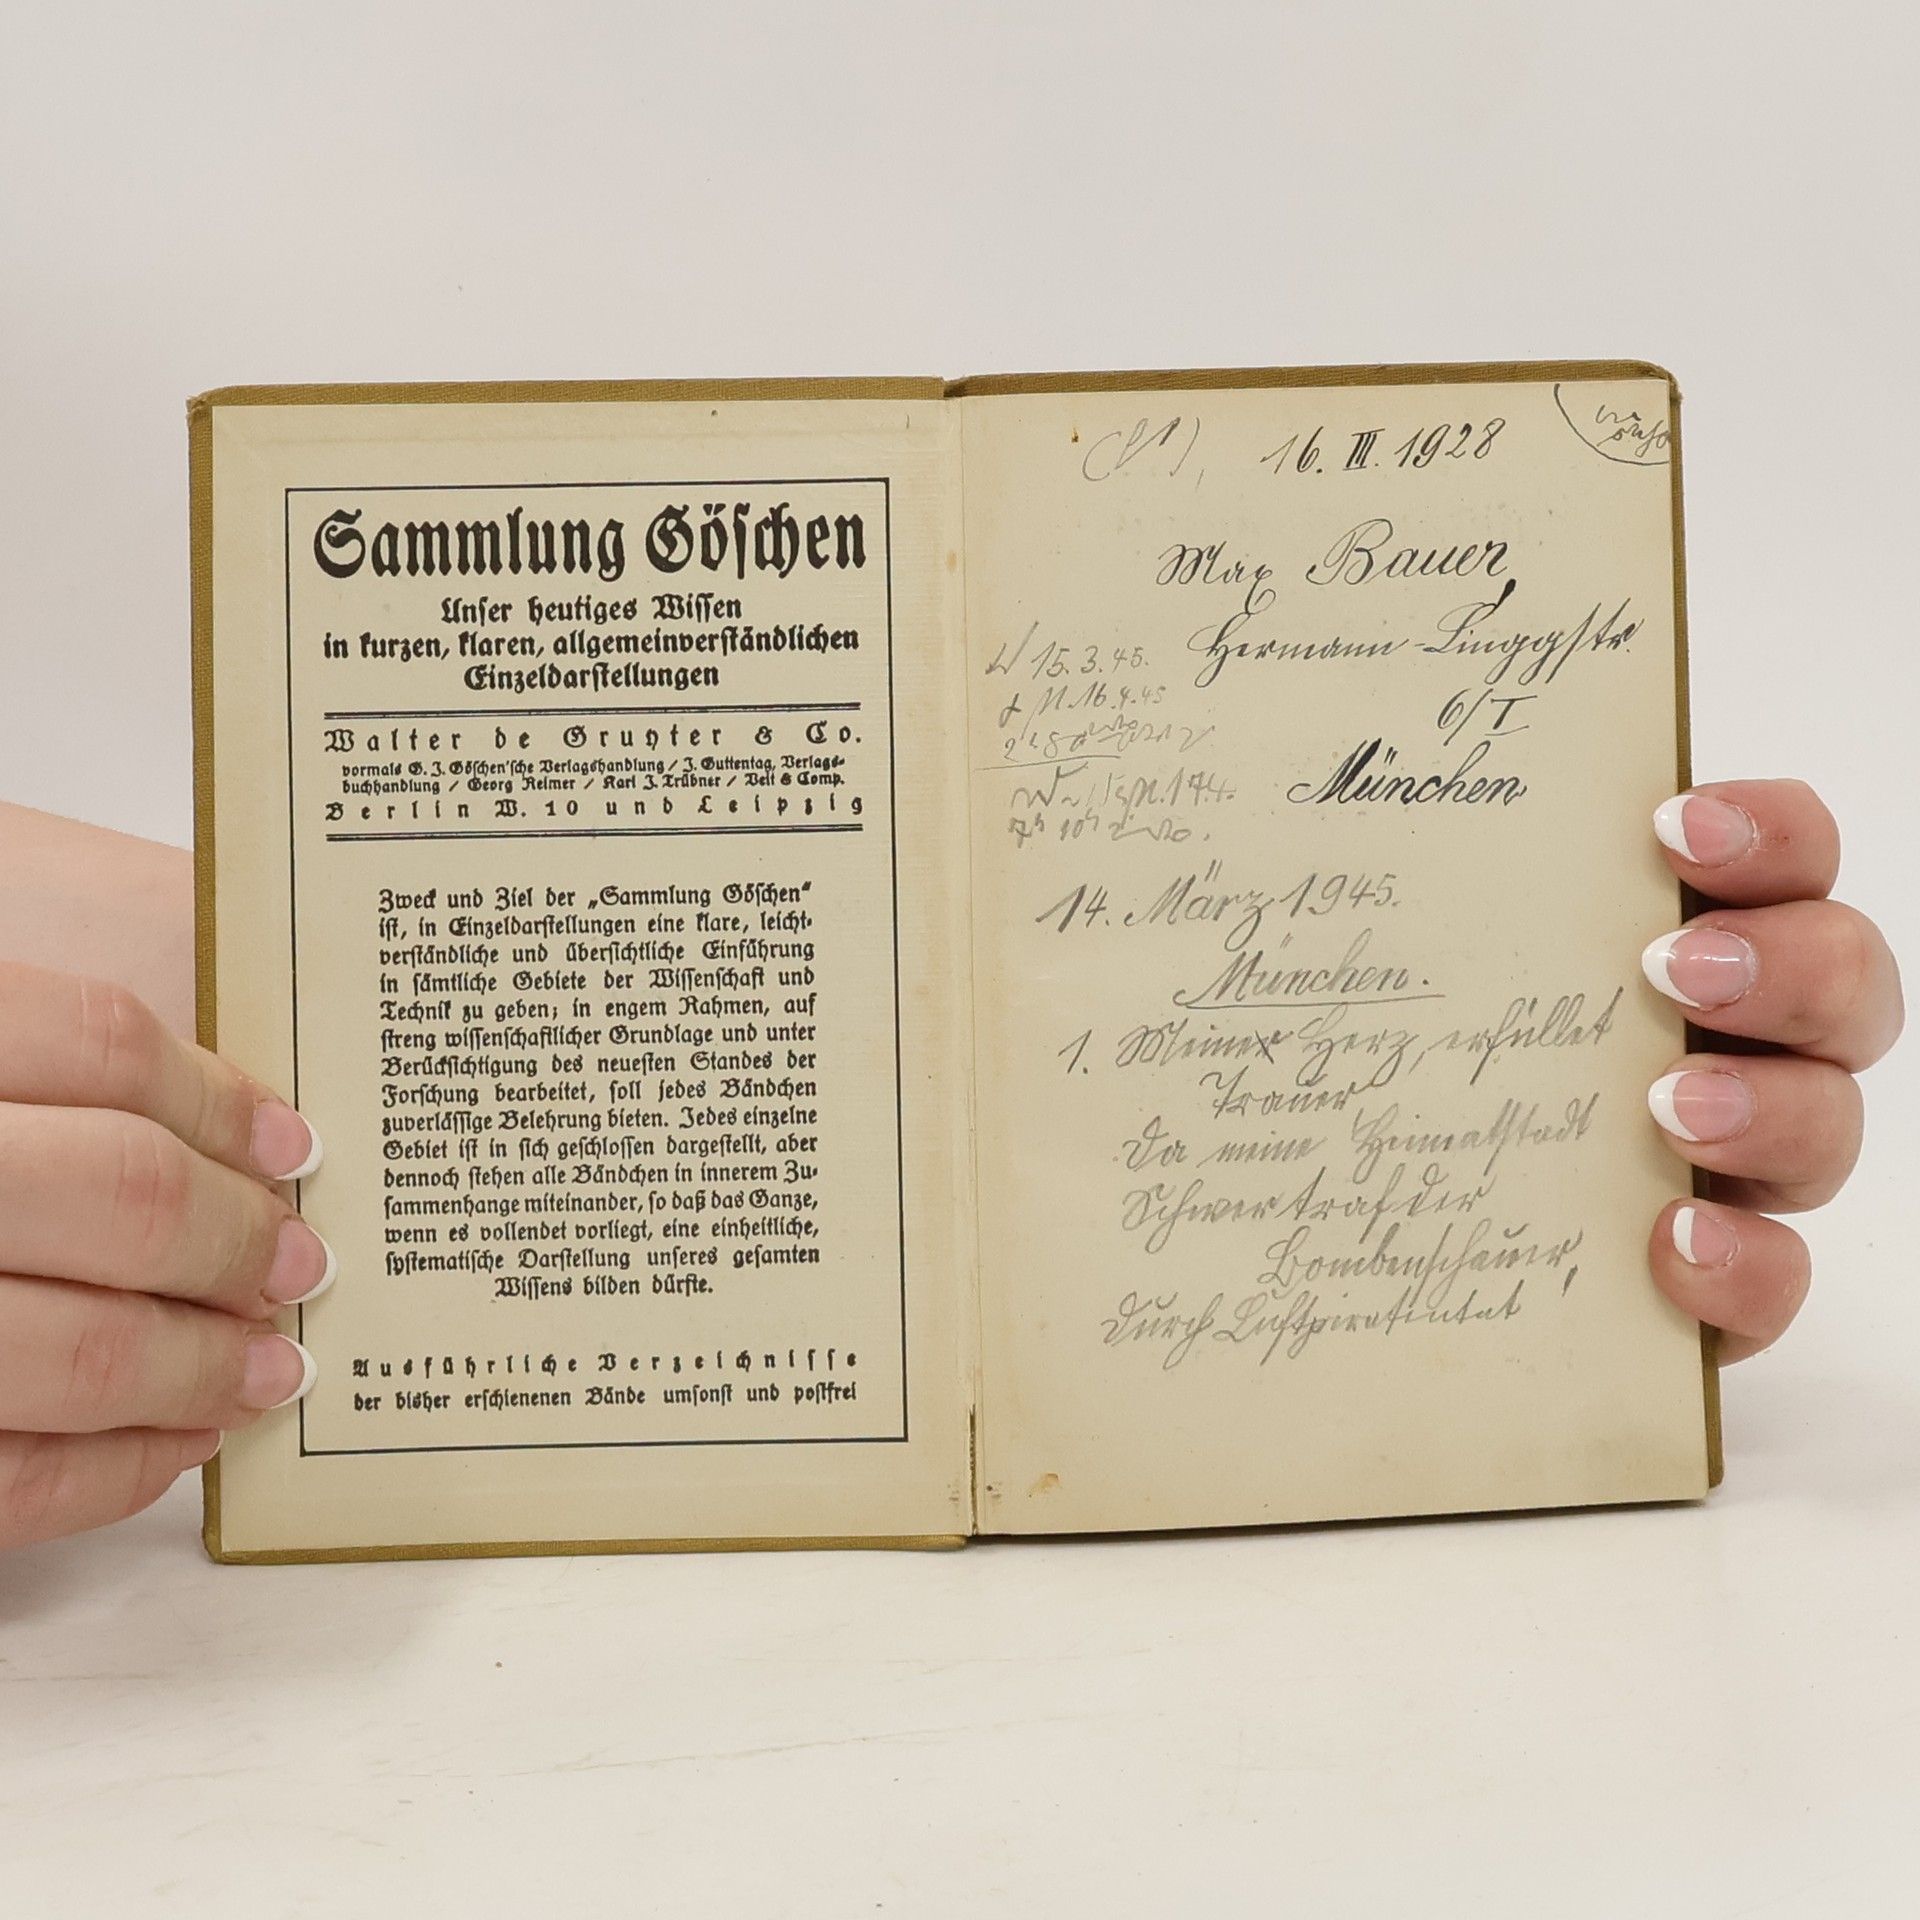 Sammlung Göschen
Unser heutiges Wissen
in kurzen, klaren, allgemeinverständlichen
Einzeldarstellungen
Walter de Gruyter & Co.
vormals G. J. Göschen'sche Verlagshandlung / J. Guttentag, Verlags-
buchhandlung / Georg Reimer / Karl J. Trübner / Veit & Comp.
Berlin W. 10 und Leipzig
Zweck und Ziel der „Sammlung Göschen“
ist, in Einzeldarstellungen eine klare, leicht-
verständliche und übersichtliche Einführung
in sämtliche Gebiete der Wissenschaft und
Technik zu geben; in engem Rahmen, auf
streng wissenschaftlicher Grundlage und unter
Berücksichtigung des neuesten Standes der
Forschung bearbeitet, soll jedes Bändchen
zuverlässige Belehrung bieten. Jedes einzelne
Gebiet ist in sich geschlossen dargestellt, aber
dennoch stehen alle Bändchen in innerem Zu-
sammenhange miteinander, so daß das Ganze,
wenn es vollendet vorliegt, eine einheitliche,
systematische Darstellung unseres gesamten
Wissens bilden dürfte.
Ausführliche Verzeichnisse
der bisher erschienenen Bände umsonst und postfrei
16. III. 1928
Max Bauer,
Hermann-Linggstr.
6/I
München
15.3.45.
16.4.45
14. März 1945.
München.
1. Meine Herz, erfüllet
Trauer
Da meine Heimatstadt
Schwer traf der
Bombenschauer,
Durch